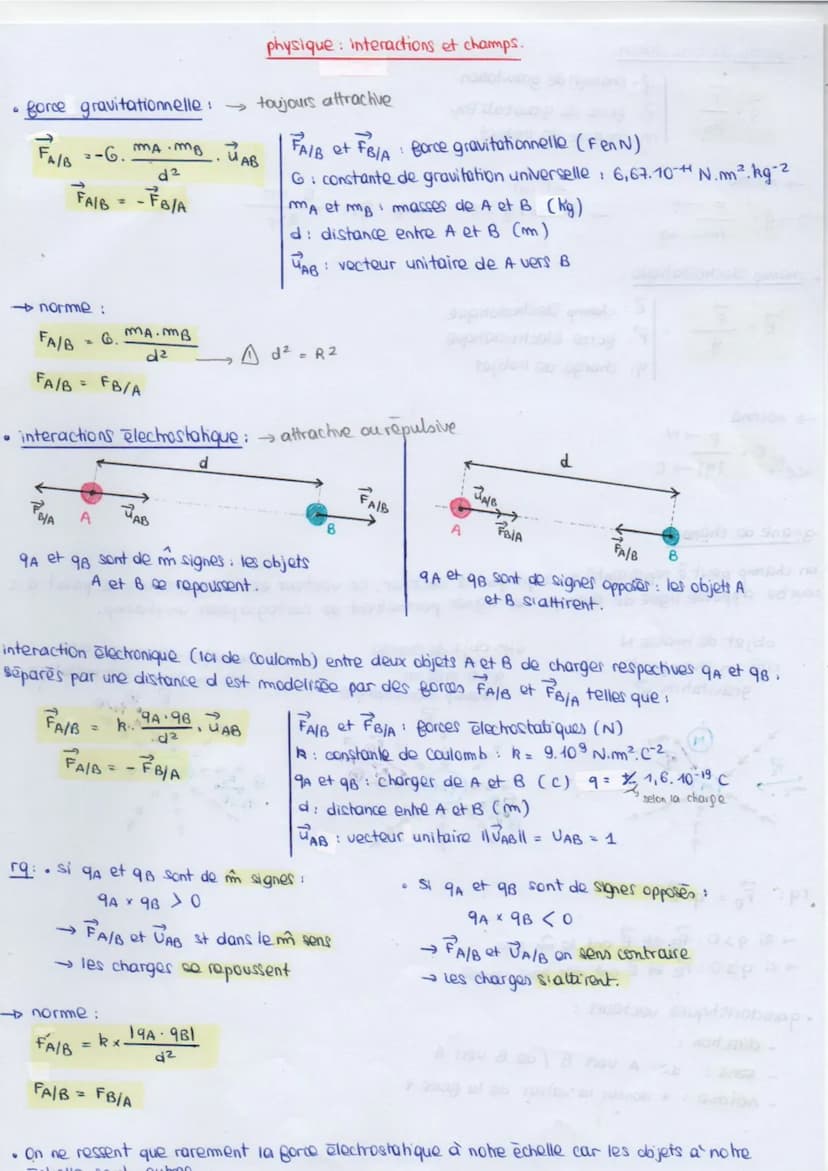 physique : interactions et champs.
• force gravitationnelle : → toujours attractive
F⃗A/B = -G. mA . mB / d² . u⃗AB
F⃗A/B = - F⃗B/A
F⃗A/B et F⃗B/A : force gravitationnelle (F en N)
G : constante de gravitation universelle : 6,67.10⁻¹¹ N.m².kg⁻²
mA et mB : masses de A et B (kg)
d : distance entre A et B (m)
u⃗AB : vecteur unitaire de A vers B
→ norme :
FA/B = G. mA.mB / d² → ⚠ d² = R²
FA/B = FB/A
• interactions électrostatique : → attractive ou répulsive
d
F⃗B/A A u⃗AB B F⃗A/B
qA et qB sont de m̂ signes : les objets
A et B se repoussent.
d
A u⃗A/B F⃗B/A F⃗A/B B
qA et qB sont de signes opposés : les objets A
et B s'attirent.
interaction électronique (loi de Coulomb) entre deux objets A et B de charges respectives qA et qB,
séparés par une distance d est modélisée par des forces F⃗A/B et F⃗B/A telles que :
F⃗A/B = k. qA . qB / d² . u⃗AB
F⃗A/B = - F⃗B/A
F⃗A/B et F⃗B/A : forces électrostatiques (N)
k : constante de Coulomb : k = 9.10⁹ N.m².C⁻²
qA et qB : charges de A et B (C) q = +/- 1,6.10⁻¹⁹ C
selon la charge
d : distance entre A et B (m)
u⃗AB : vecteur unitaire ||u⃗AB|| = UAB = 1
rq : • si qA et qB sont de m̂ signes :
qA x qB > 0
→ F⃗A/B et U⃗AB st dans le m̂ sens
→ les charges se repoussent
• Si qA et qB sont de signes opposés :
qA x qB < 0
→ F⃗A/B et U⃗A/B en sens contraire
→ Les charges s'attirent.
→ norme :
FA/B = k x |qA . qB| / d²
FA/B = FB/A
• On ne ressent que rarement la force électrostatique à notre échelle car les objets à notre